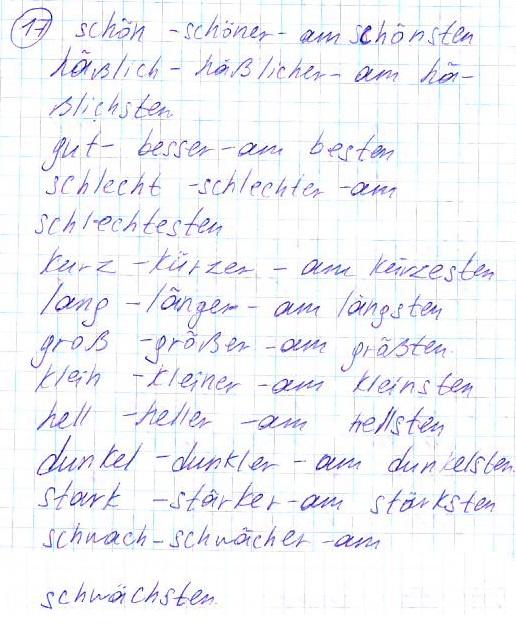 17 schön - schöner - am schönsten
häßlich - häßlicher - am hä-
ßlichsten
gut - besser - am besten
schlecht - schlechter - am
schlechtesten
kurz - kürzer - am kürzesten
lang - länger - am längsten
groß - größer - am größten.
klein - kleiner - am kleinsten
hell - heller - am hellsten
dunkel - dunkler - am dunkelsten.
stark - stärker - am stärksten
schwach - schwächer - am
schwächsten.